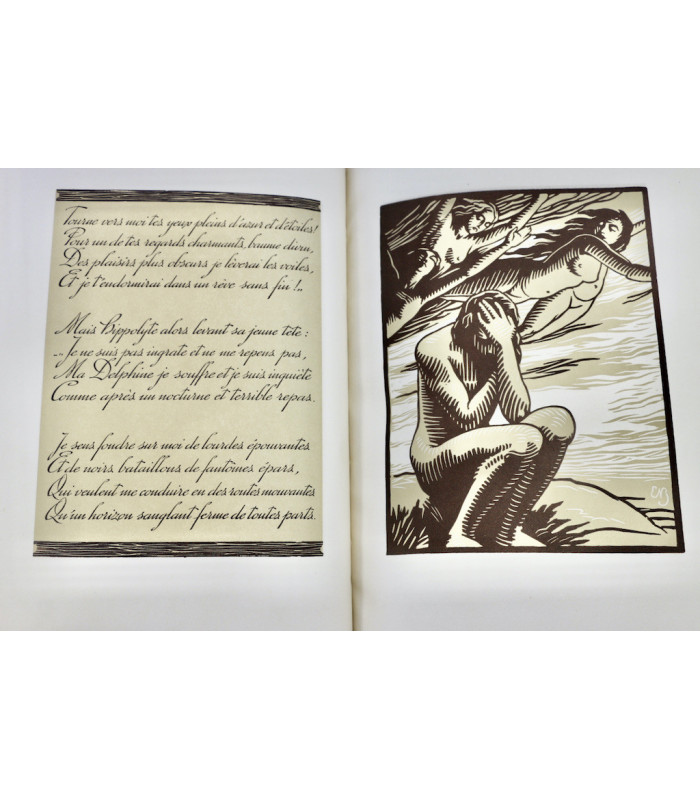 Tourne vers moi tes yeux pleins d'azur et d'étoiles!
Pour un de tes regards charmants, baume divin,
Des plaisirs plus obscurs je lèverai les voiles,
Et je t'endormirai dans un rêve sans fin!..
Mais Hippolyte alors levant sa jeune tête:
.. Je ne suis pas ingrate et ne me repens pas,
Ma Delphine je souffre et je suis inquiète
Comme après un nocturne et terrible repas.
Je sens fondre sur moi de lourdes épouvantes
Et de noirs bataillons de fantômes épars,
Qui veulent me conduire en des routes mouvantes
Qu'un horizon sanglant ferme de toutes parts.